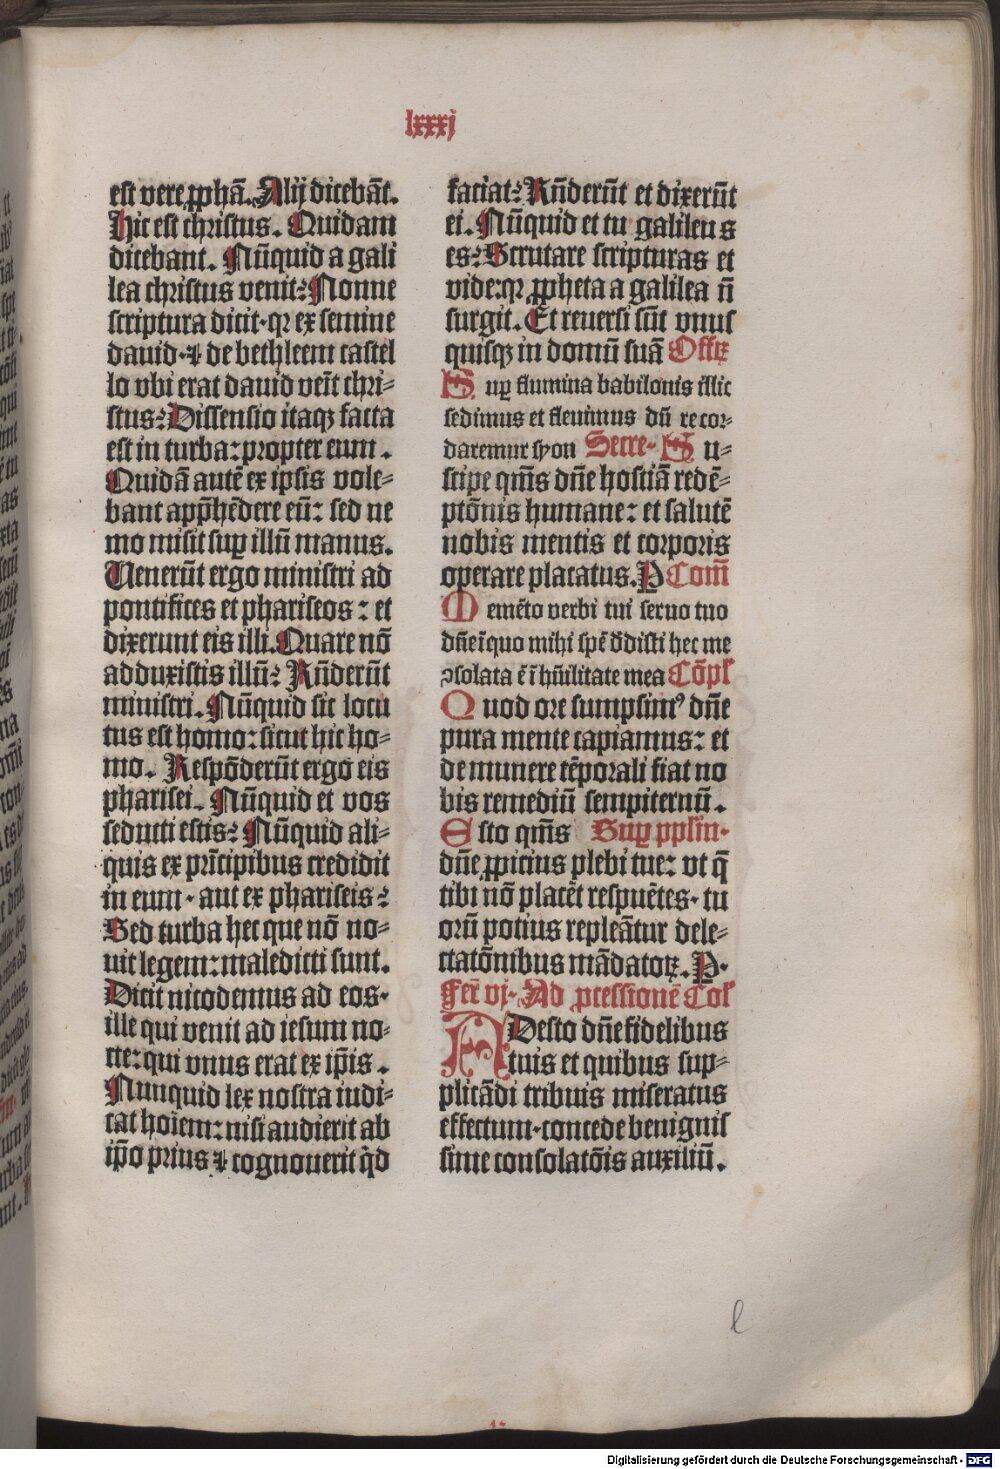 lxxxj
est vere ꝓphā. Alij dicebāt.
Hic est christus. Quidam
dicebant. Nūquid a gali
lea christus venit? Nonne
scriptura dicit· qꝛ ex semine
dauid· ⁊ de bethleem castel
lo vbi erat dauid veīt chri⸗
stus? Dissensio itaqꝫ facta
est in turba: propter eum.
Quidā autē ex ipsis vole⸗
bant app̄hēdere eū: sed ne
mo misit suꝑ illū manus.
Uenerūt ergo ministri ad
pontifices et phariseos: et
dixerunt eis illi. Quare nō
adduxistis illū? Rn̄derūt
ministri. Nūquid sic locu
tus est homo: sicut hic ho⸗
mo. Respōderūt ergo eis
pharisei. Nūquid et vos
seducti estis? Nūquid ali⸗
quis ex prīcipibus credidit
in eum· aut ex phariseis?
Sed turba hec que nō no⸗
uit legem: maledicti sunt.
Dicit nicodemus ad eos·
ille qui venit ad iesum no⸗
cte: qui vnus erat ex ip̄is.
Nunquid lex nostra iudi⸗
cat hoīem: nisi audierit ab
ip̄o prius ⁊ cognouerit q̇d
faciat? Rn̄derūt et dixerūt
ei. Nūquid et tu galileus
es? Scrutare scripturas et
vide: qꝛ ꝓpheta a galilea n̄
surgit. Et reuersi sūt vnus
quisqꝫ in domū suā Offꝝ
Suꝑ flumina babilonis illic
sedimus et fleuimus dū recor⸗
daremur syon Secre· Su⸗
scipe qm̄s dn̄e hostiā redē⸗
ptōnis humane: et salutē
nobis mentis et corporis
operare placatus. P Com̄
Memēto verbi tui seruo tuo
dn̄e ī quo mihi spē dedisti hec me
ꝯsolata ē ī hūilitate mea Cōpl
Quod ore sumpsimꝰ dn̄e
pura mente capiamus: et
de munere tēporali fiat no
bis remediū sempiternū.
Esto qm̄s Suꝑ pplm̄·
dn̄e ꝓpicius plebi tue: vt q̄
tibi nō placēt respuētes· tu
orū potius repleātur dele⸗
ctatōnibus mādatoꝝ. P·
Fer̄ vj· Ad ꝓcessionē Col
ADesto dn̄e fidelibus
tuis et quibus sup⸗
plicādi tribuis miseratus
effectum· concede benignis
sime consolatōis auxiliū.
l
Digitalisierung gefördert durch die Deutsche Forschungsgemeinschaft - DFG